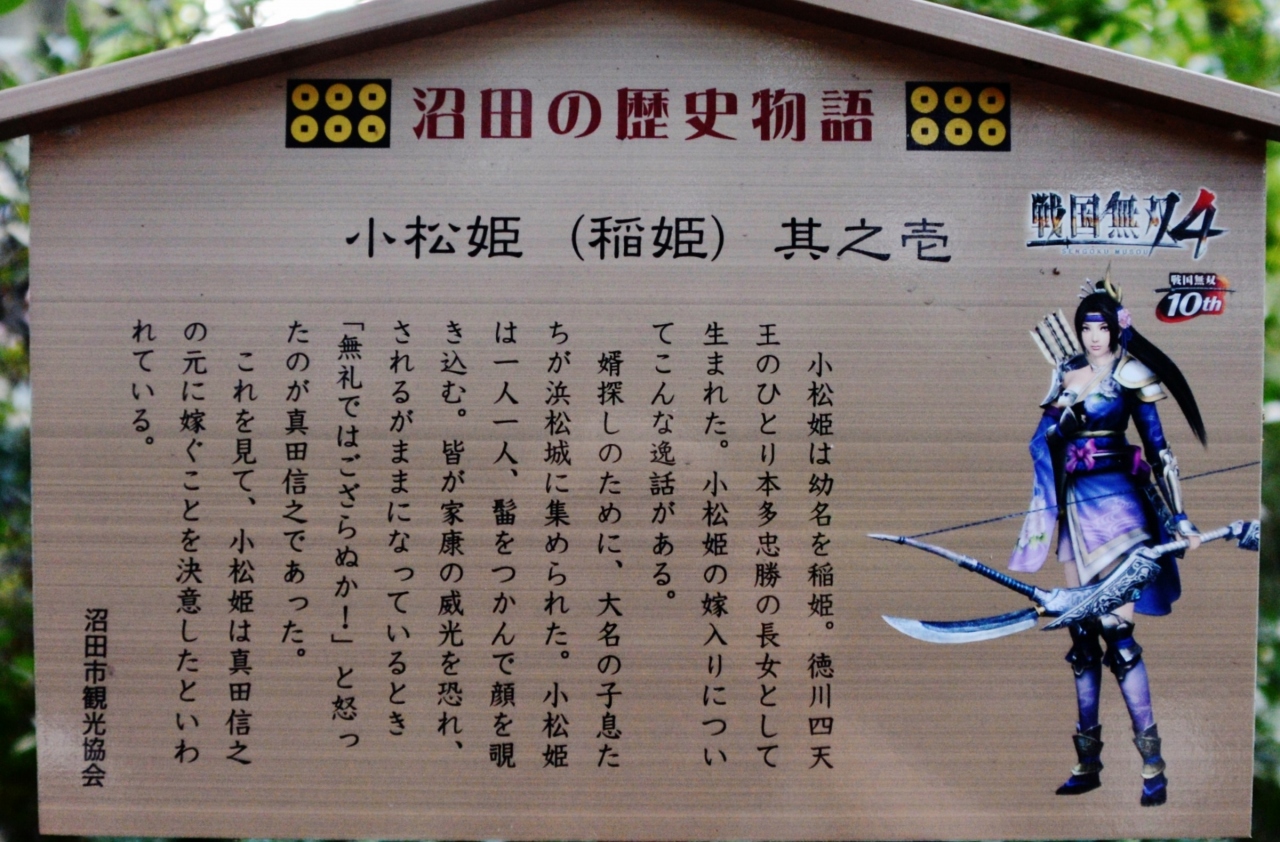 沼田の歴史物語
小松姫（稲姫） 其之壱
戦国無双4
SENGOKU MUSOU
戦国無双
10th
小松姫は幼名を稲姫。徳川四天
王のひとり本多忠勝の長女として
生まれた。小松姫の嫁入りについ
てこんな逸話がある。
婿探しのために、大名の子息た
ちが浜松城に集められた。小松姫
は一人一人、髷をつかんで顔を覗
き込む。皆が家康の威光を恐れ、
されるがままになっているとき
「無礼ではござらぬか！」と怒っ
たのが真田信之であった。
これを見て、小松姫は真田信之
の元に嫁ぐことを決意したといわ
れている。
沼田市観光協会